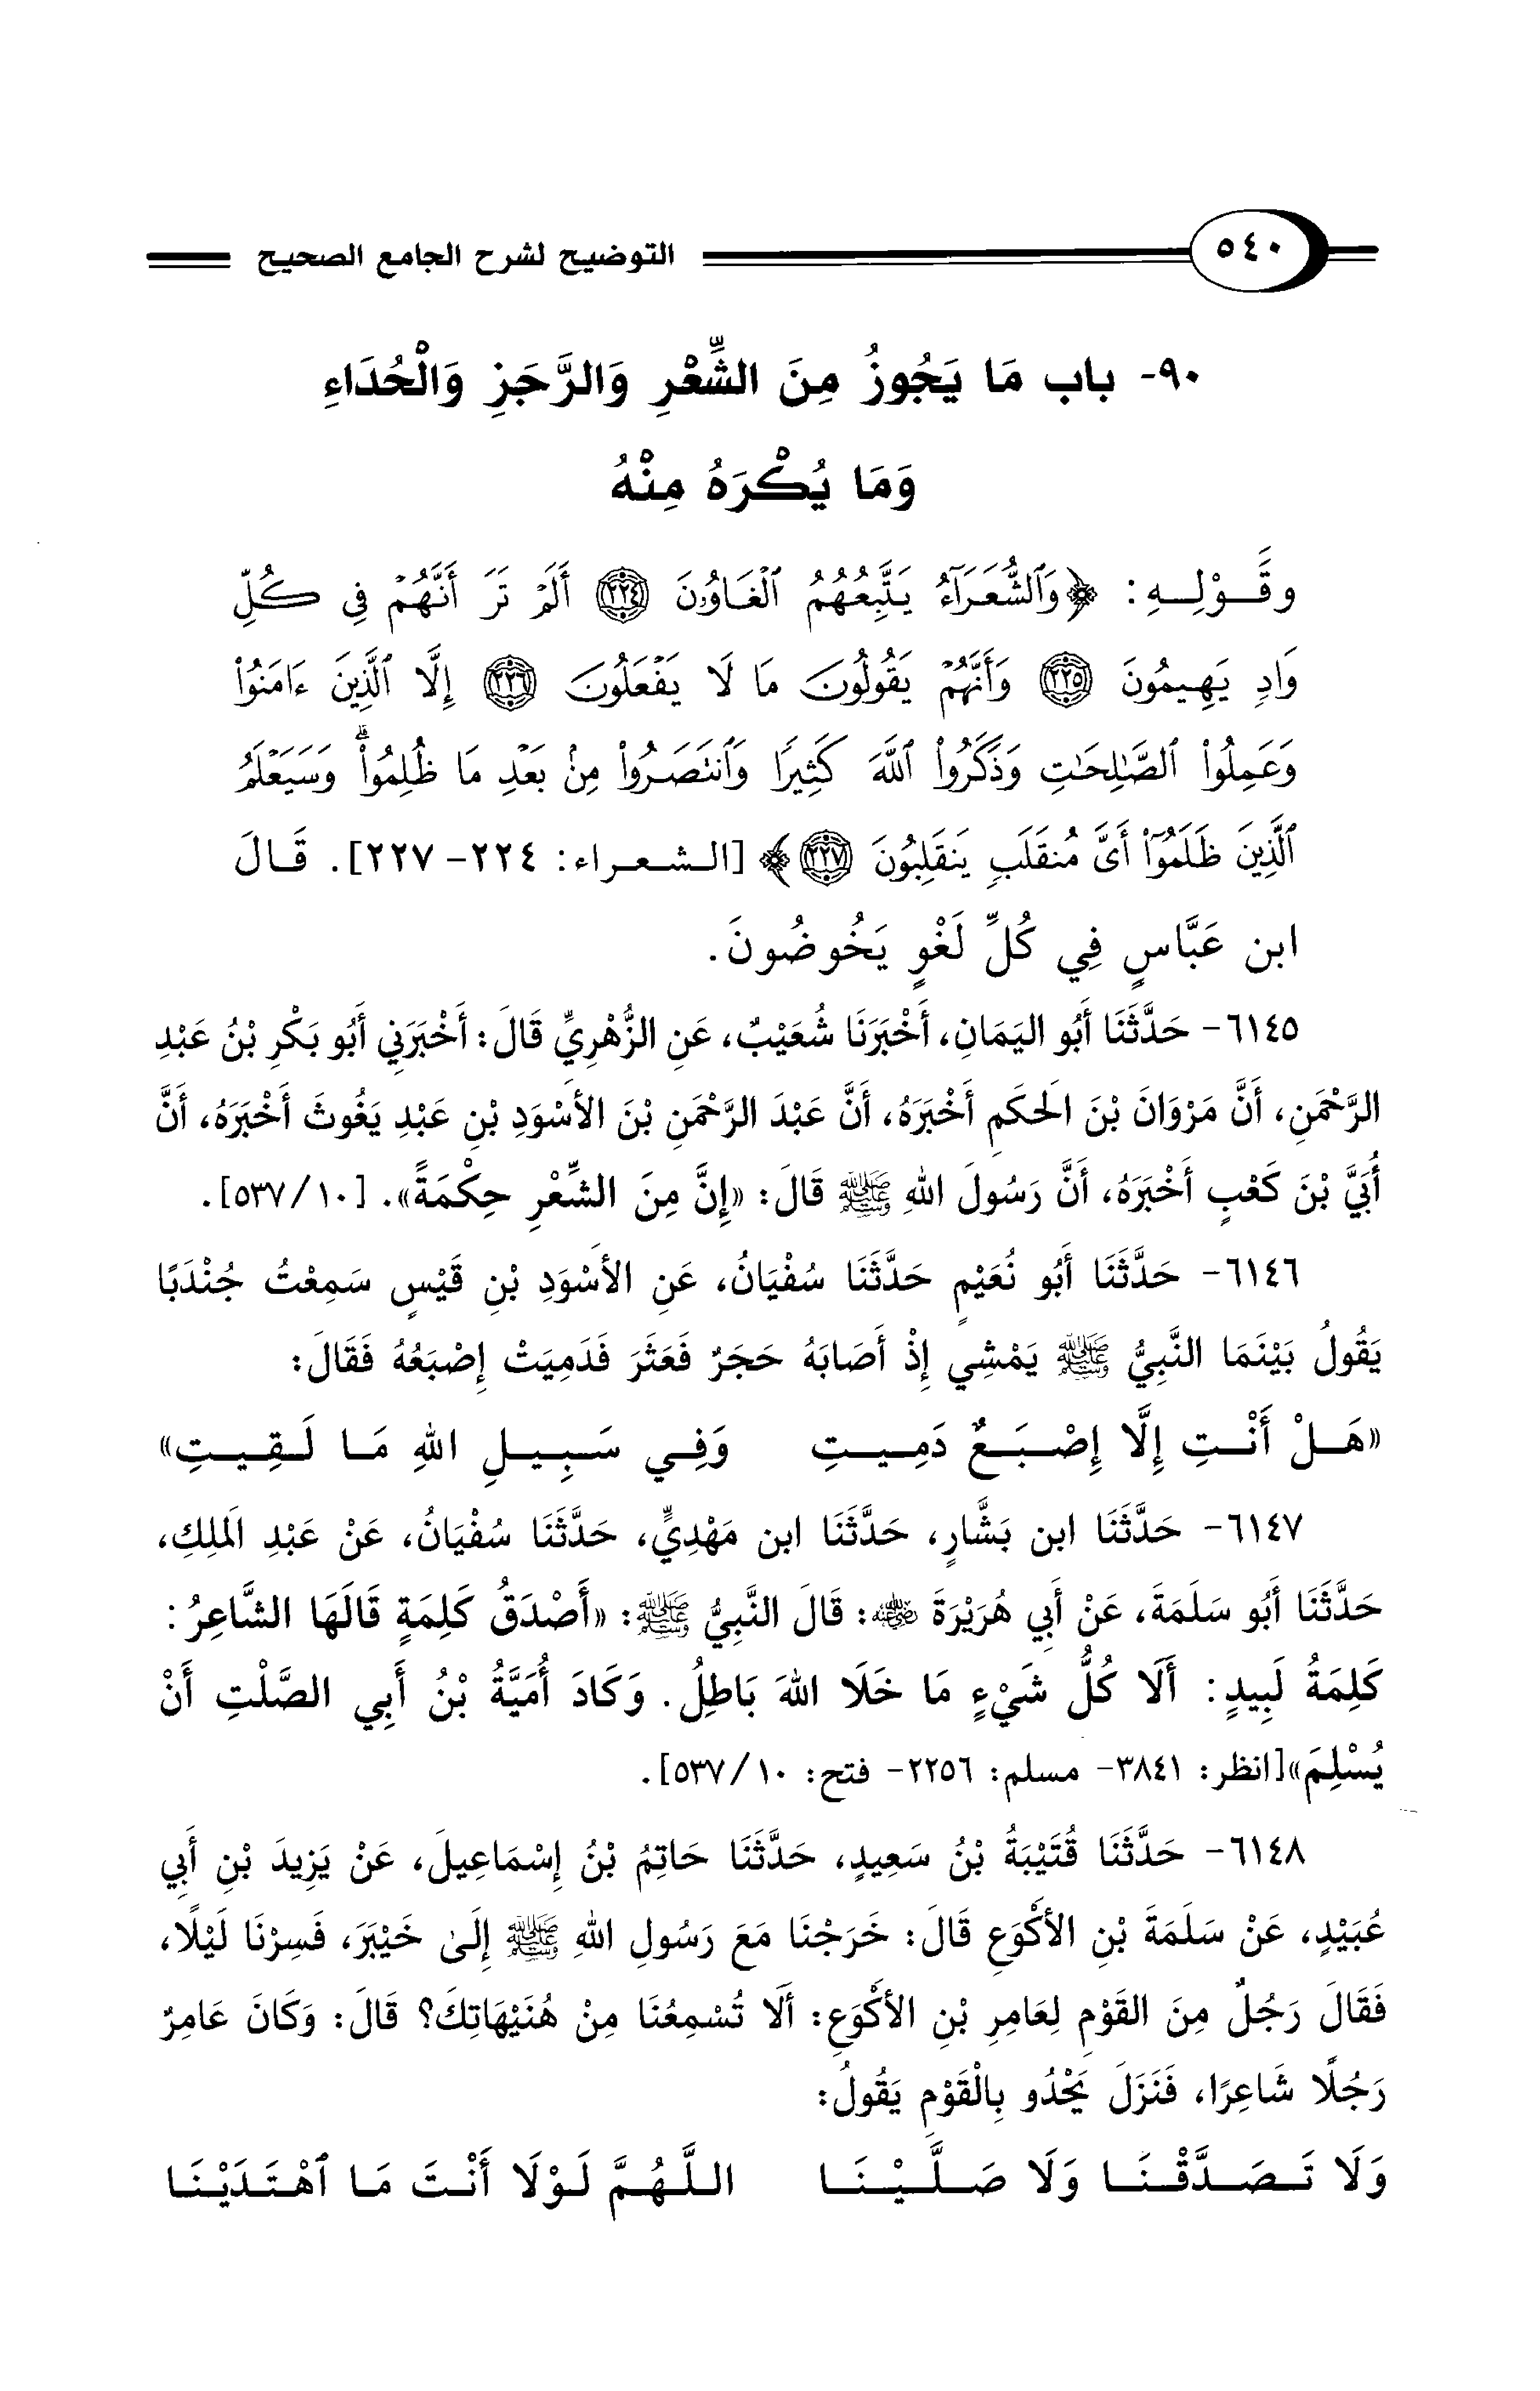 ٥٤٠ التوضيح لشرح الجامع الصحيح
٩٠- باب مَا يَجُوزُ مِنَ الشِّعْرِ وَالرَّجَزِ وَالْحُدَاءِ
وَمَا يُكْرَهُ مِنْهُ
وقَوْلِهِ: ﴿وَٱلشُّعَرَآءُ يَتَّبِعُهُمُ ٱلْغَاوُۥنَ ٢٢٤ أَلَمْ تَرَ أَنَّهُمْ فِي كُلِّ
وَادٍ يَهِيمُونَ ٢٢٥ وَأَنَّهُمْ يَقُولُونَ مَا لَا يَفْعَلُونَ ٢٢٦ إِلَّا ٱلَّذِينَ ءَامَنُوا۟
وَعَمِلُوا۟ ٱلصَّٰلِحَٰتِ وَذَكَرُوا۟ ٱللَّهَ كَثِيرًا وَٱنتَصَرُوا۟ مِنۢ بَعْدِ مَا ظُلِمُوا۟ۗ وَسَيَعْلَمُ
ٱلَّذِينَ ظَلَمُوٓا۟ أَىَّ مُنقَلَبٍ يَنقَلِبُونَ ٢٢٧﴾ [الشعراء: ٢٢٤-٢٢٧]. قَالَ
ابن عَبَّاسٍ فِي كُلِّ لَغْوٍ يَخُوضُونَ.
٦١٤٥- حَدَّثَنَا أَبُو اليَمَانِ، أَخْبَرَنَا شُعَيْبٌ، عَنِ الزُّهْرِيِّ قَالَ: أَخْبَرَنِي أَبُو بَكْرِ بْنُ عَبْدِ
الرَّحْمَنِ، أَنَّ مَرْوَانَ بْنَ الَحكَمِ أَخْبَرَهُ، أَنَّ عَبْدَ الرَّحْمَنِ بْنَ الأَسْوَدِ بْنِ عَبْدِ يَغُوثَ أَخْبَرَهُ، أَنَّ
أُبَيَّ بْنَ كَعْبٍ أَخْبَرَهُ، أَنَّ رَسُولَ اللهِ ﷺ قَالَ: «إِنَّ مِنَ الشِّعْرِ حِكْمَةً». [١٠/٥٣٧].
٦١٤٦- حَدَّثَنَا أَبُو نُعَيْمٍ حَدَّثَنَا سُفْيَانُ، عَنِ الأَسْوَدِ بْنِ قَيْسٍ سَمِعْتُ جُنْدَبًا
يَقُولُ بَيْنَمَا النَّبِيُّ ﷺ يَمْشِي إِذْ أَصَابَهُ حَجَرٌ فَعَثَرَ فَدَمِيَتْ إِصْبَعُهُ فَقَالَ:
«هَلْ أَنْتِ إِلَّا إِصْبَعٌ دَمِيتِ وَفِي سَبِيلِ اللهِ مَا لَقِيتِ»
٦١٤٧- حَدَّثَنَا ابن بَشَّارٍ، حَدَّثَنَا ابن مَهْدِيٍّ، حَدَّثَنَا سُفْيَانُ، عَنْ عَبْدِ الَملِكِ،
حَدَّثَنَا أَبُو سَلَمَةَ، عَنْ أَبِي هُرَيْرَةَ رضي الله عنه: قَالَ النَّبِيُّ ﷺ: «أَصْدَقُ كَلِمَةٍ قَالَهَا الشَّاعِرُ:
كَلِمَةُ لَبِيدٍ: أَلَا كُلُّ شَيْءٍ مَا خَلَا اللهَ بَاطِلُ. وَكَادَ أُمَيَّةُ بْنُ أَبِي الصَّلْتِ أَنْ
يُسْلِمَ»[انظر: ٣٨٤١- مسلم: ٢٢٥٦- فتح: ١٠/٥٣٧].
٦١٤٨- حَدَّثَنَا قُتَيْبَةُ بْنُ سَعِيدٍ، حَدَّثَنَا حَاتِمُ بْنُ إِسْمَاعِيلَ، عَنْ يَزِيدَ بْنِ أَبِي
عُبَيْدٍ، عَنْ سَلَمَةَ بْنِ الأَكْوَعِ قَالَ: خَرَجْنَا مَعَ رَسُولِ اللهِ ﷺ إِلَىٰ خَيْبَرَ، فَسِرْنَا لَيْلًا،
فَقَالَ رَجُلٌ مِنَ القَوْمِ لِعَامِرِ بْنِ الأَكْوَعِ: أَلَا تُسْمِعُنَا مِنْ هُنَيْهَاتِكَ؟ قَالَ: وَكَانَ عَامِرٌ
رَجُلًا شَاعِرًا، فَنَزَلَ يَحْدُو بِالْقَوْمِ يَقُولُ:
وَلَا تَصَدَّقْنَا وَلَا صَلَّيْنَا اللَّهُمَّ لَوْلَا أَنْتَ مَا ٱهْتَدَيْنَا